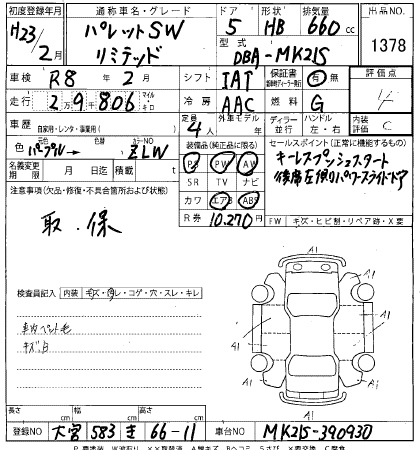 初度登録年月 通称車名・グレード ドア 形状 排気量 出品NO
H23/2月 パレットSW リミテッド 5 HB 660cc 1378
型式 DBA-MK21S
車検 R8年2月 シフト IAT 保証書 有 無 評価点 4
走行 2万9千806 マイル キロ 冷房 AAC 燃料 G 内装評価 C
車歴 自家用・レンタ・事業用( ) 定員 4人 外車モデル 年 ディーラー 並行 ハンドル 左・右
色 パープル→ 色替 カラーNO ZLW 装備品(純正品に限る) セールスポイント(正常に機能するもの)
名義変更期限 月 日迄 積載 t PS PW AW キーレスプッシュスタート
注意事項(欠品・修復・不具合箇所および状態) SR TV ナビ 後席左側パワースライドドア
取、保 カワ エアB ABS
R券 10,270円 FW キズ・ヒビ割・リペア跡・X要
検査員記入 内装 キズ・汚レ・コゲ・穴・スレ・キレ
車内ペット毛
キズ、凹
A1
A1
A1
A1
A1
A1
長さ cm 幅 cm 高さ cm
登録NO 大宮 583 き 66-11 車台NO MK21S-390930